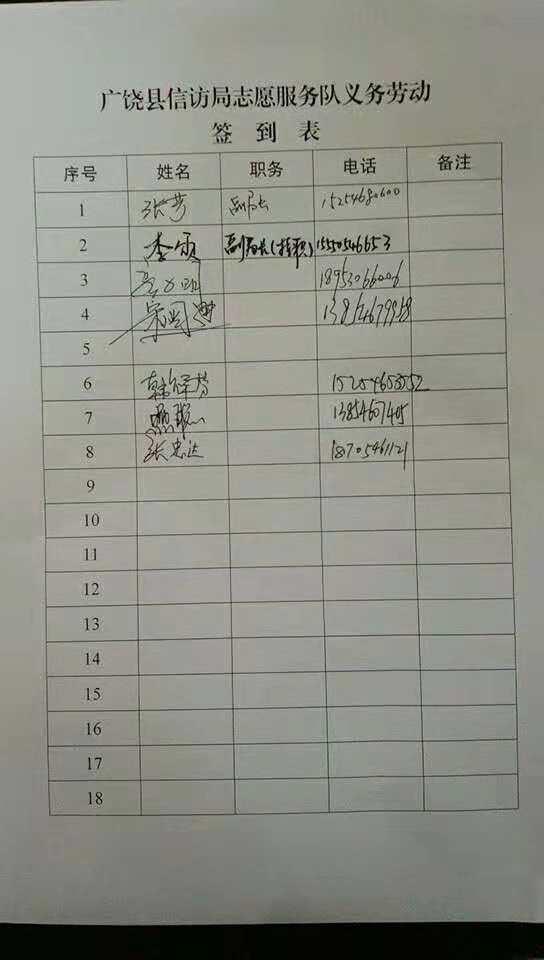 广饶县信访局志愿服务队义务劳动
签 到 表
序号 姓名 职务 电话 备注
1 张芳 副局长 15254680600
2 李 副局长(挂职) 15550546653
3 18953066006
4
5
6 韩泽芳
7 13854607405
8 张忠达 18705461121
9
10
11
12
13
14
15
16
17
18